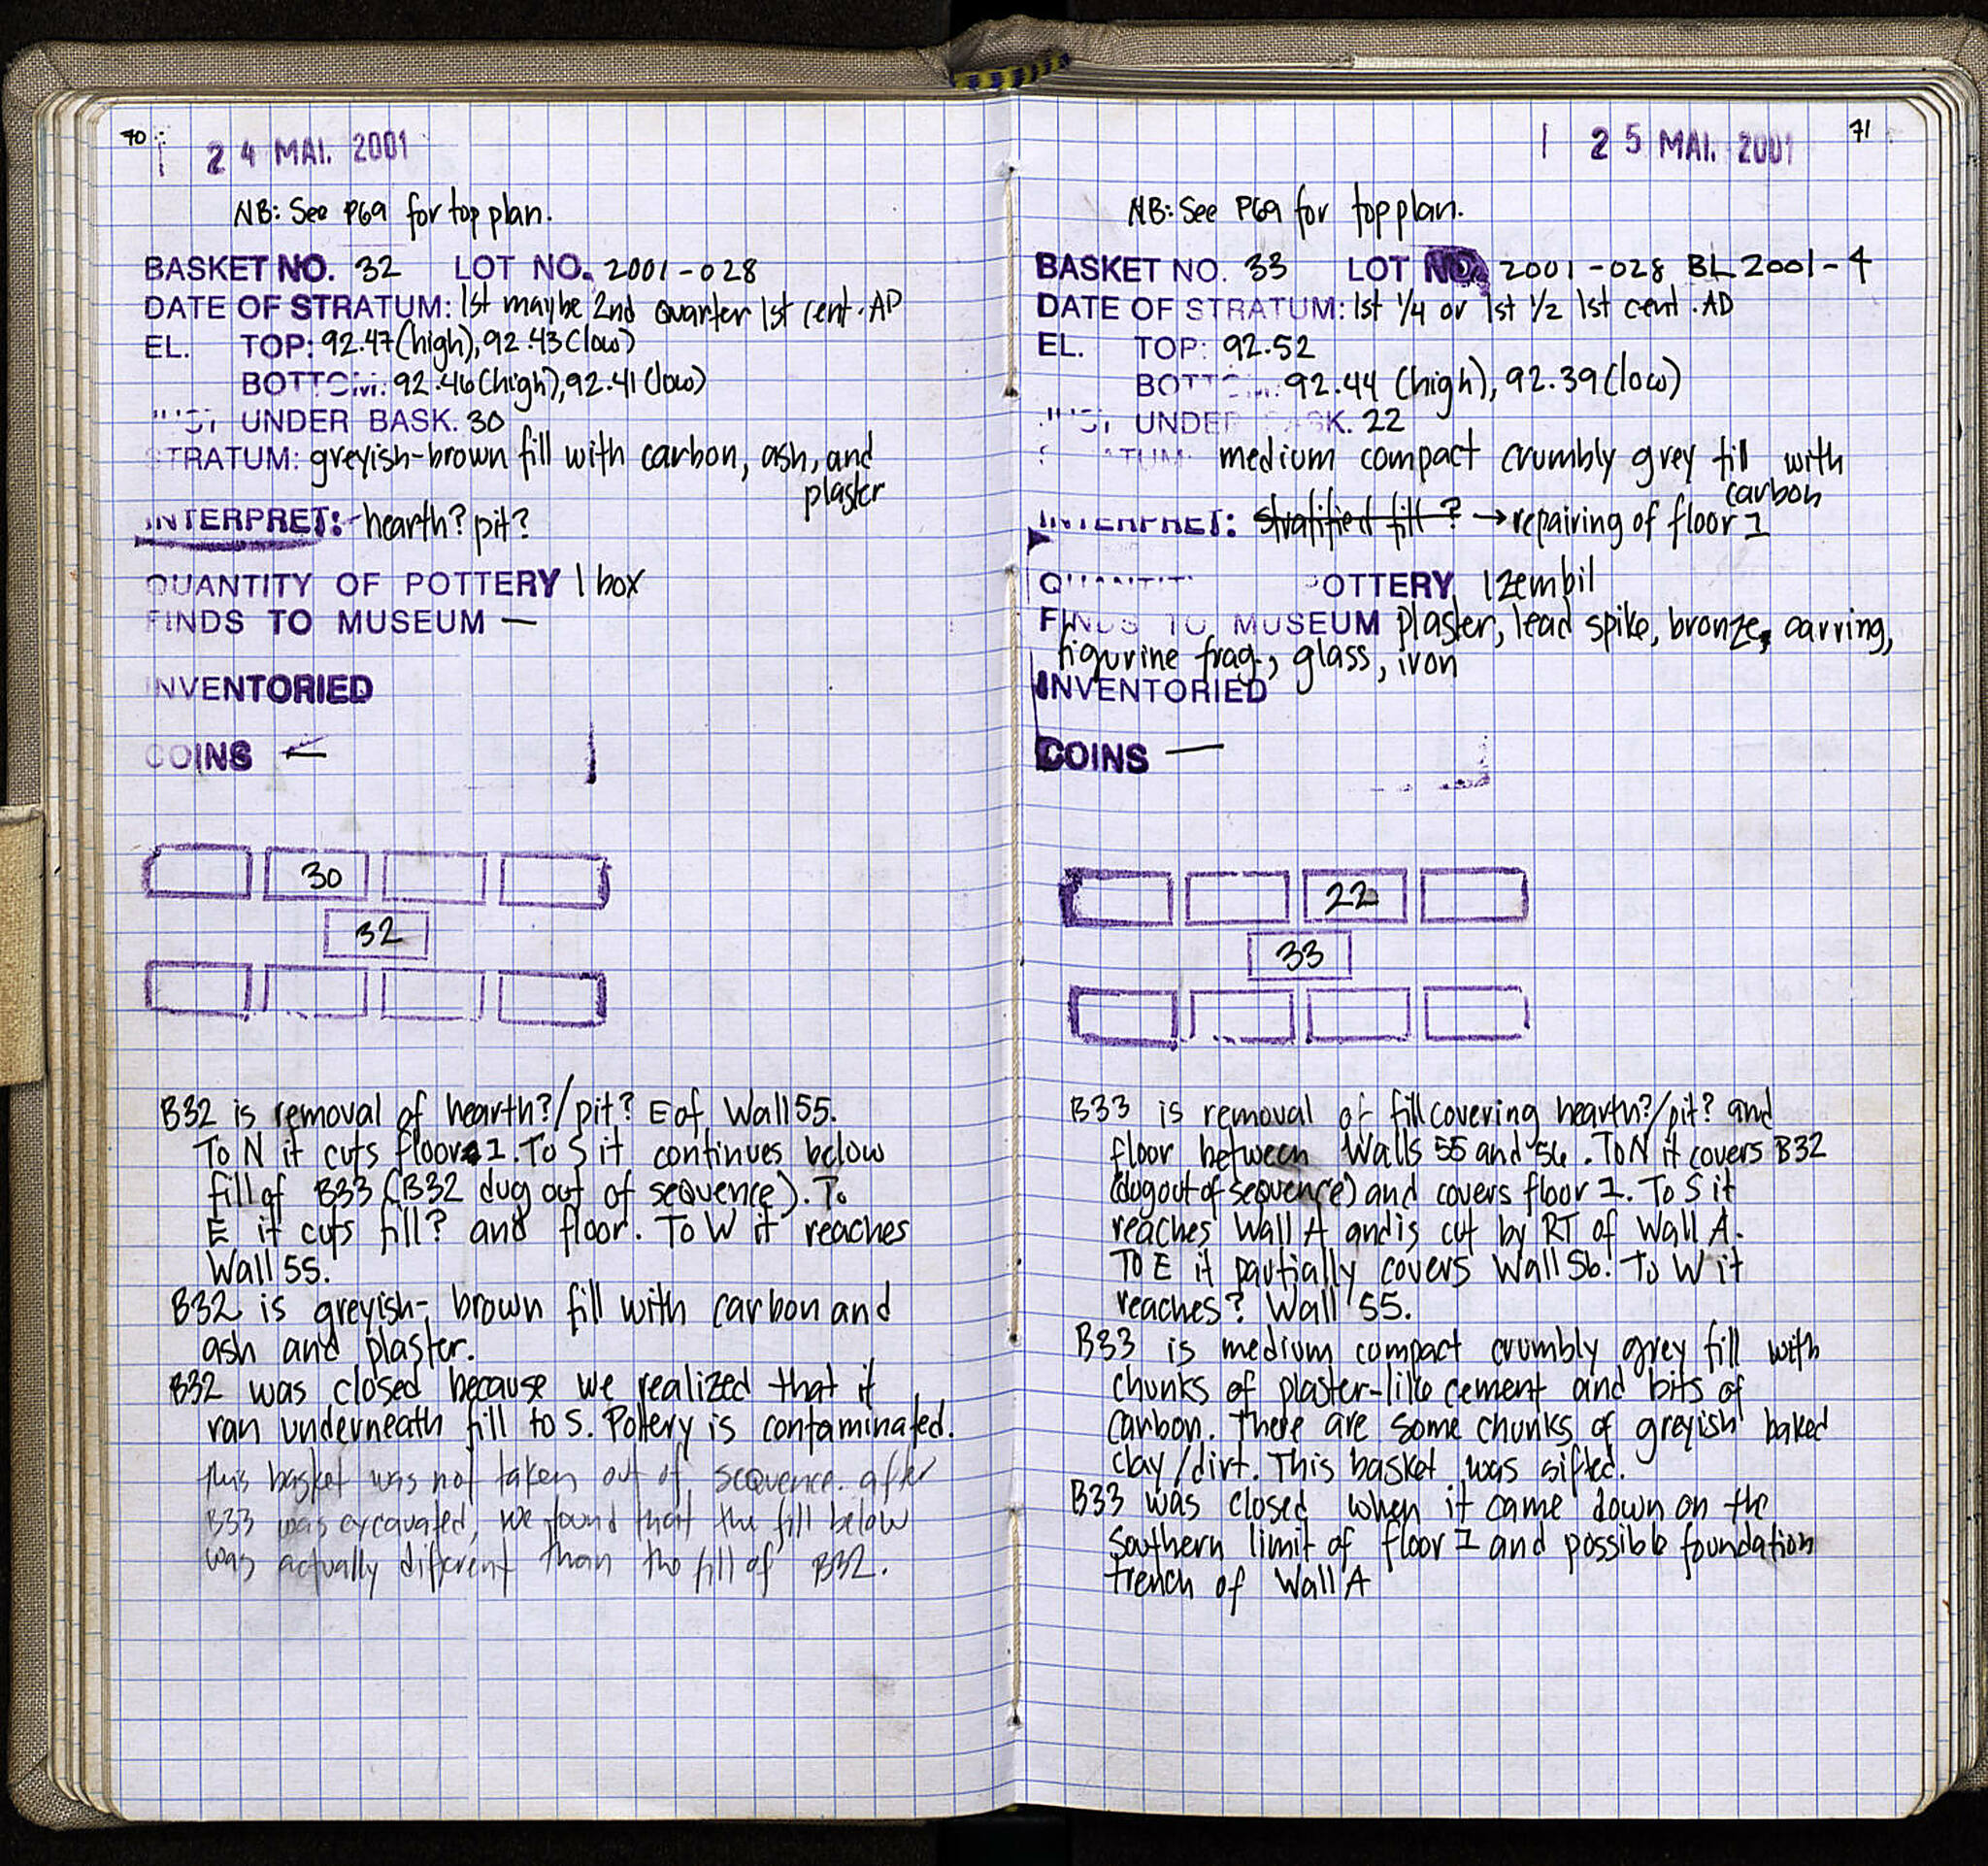 70
24 MAI. 2001
NB: See P69 for top plan.
BASKET NO. 32 LOT NO. 2001-028
DATE OF STRATUM: 1st maybe 2nd quarter 1st cent. AD
EL. TOP: 92.47(high), 92.43(low)
BOTTOM: 92.46(high), 92.41(low)
UNDER BASK. 30
STRATUM: greyish-brown fill with carbon, ash, and
plaster
INTERPRET: hearth? pit?
QUANTITY OF POTTERY 1 box
FINDS TO MUSEUM —
INVENTORIED
COINS —
30
32
B32 is removal of hearth?/pit? E of Wall 55.
To N it cuts floor 1. To S it continues below
fill of B33 (B32 dug out of sequence). To
E it cuts fill? and floor. To W it reaches
Wall 55.
B32 is greyish-brown fill with carbon and
ash and plaster.
B32 was closed because we realized that it
ran underneath fill to S. Pottery is contaminated.
this basket was not taken out of sequence. after
B33 was excavated, we found that the fill below
was actually different than the fill of B32.
71
25 MAI. 2001
NB: See P69 for top plan.
BASKET NO. 33 LOT NO. 2001-028 BL 2001-4
DATE OF STRATUM: 1st 1/4 or 1st 1/2 1st cent. AD
EL. TOP: 92.52
BOTTOM: 92.44 (high), 92.39(low)
UNDER BASK. 22
STRATUM: medium compact crumbly grey fill with
carbon
INTERPRET: stratified fill? → repairing of floor 1
QUANTITY OF POTTERY 1 zembil
FINDS TO MUSEUM plaster, lead spike, bronze, earring,
figurine frag., glass, iron
INVENTORIED
COINS —
22
33
B33 is removal of fill covering hearth?/pit? and
floor between Walls 55 and 56. To N it covers B32
(dug out of sequence) and covers floor 1. To S it
reaches Wall A and is cut by RT of Wall A.
To E it partially covers Wall 56. To W it
reaches? Wall 55.
B33 is medium compact crumbly grey fill with
chunks of plaster-like cement and bits of
carbon. There are some chunks of greyish baked
clay/dirt. This basket was sifted.
B33 was closed when it came down on the
southern limit of floor 1 and possible foundation
trench of Wall A